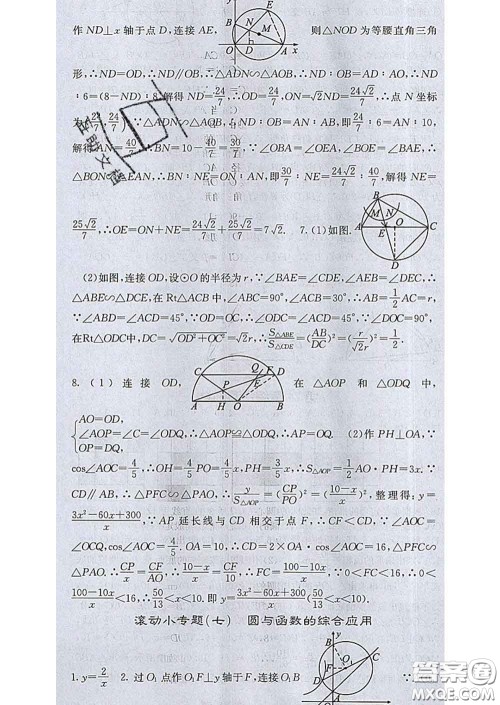 作ND⊥x轴于点D,连接AE, 则△NOD为等腰直角三角
形,∴ND=OD,∴ND∥OB,∴△ADN∽△AOB,∴ND∶OB=AD∶AO,∴ND
∶6=(8-ND)∶8,解得ND=24/7,∴OD=24/7,ON=√2ND=24√2/7,∴点N坐标
为(24/7,24/7).∵△ADN∽△AOB,∴ND∶OB=AN∶AB,即24/7∶6=AN∶10,
解得AN=40/7,∴BN=10-40/7=30/7.∵∠OBA=∠OEA,∠BOE=∠BAE,∴
△BON∽△EAN,∴BN∶NE=ON∶AN,即30/7∶NE=24√2/7∶40/7,解得NE=
25√2/7,∴OE=ON+NE=24√2/7+25√2/7=7√2. 7.(1)如图.
(2)如图,连接OD,设⊙O的半径为r,∵∠BAE=∠CDE,∠AEB=∠DEC,∴
△ABE∽△DCE,在Rt△ACB中,∠ABC=90°,∠ACB=30°,∴AB=1/2AC=r,
∵∠ABD=∠ACD=45°,∵OD=OC,∴∠ODC=∠OCD=45°,∴∠DOC=90°,
在Rt△ODC中,DC=√(OD²+OC²)=√2r,∴S△ABE/S△CDE=(AB/DC)²=(r/√2r)²=1/2.
8.(1)连接OD, 在△AOP和△ODQ中,
{AO=OD,
∠AOP=∠C=∠ODQ,∴△AOP≌△ODQ,∴AP=OQ. (2)作PH⊥OA,∵
OP=DQ,
cos∠AOC=4/5,∴OH=4/5PO=4/5x,PH=3/5x,∴S△AOP=1/2AO·PH=3x.
∵CD∥AB,∴△PFC∽△PAO,∴y/S△AOP=(CP/PO)²=((10-x)/x)²,整理得:y=
(3x²-60x+300)/x,∵AP延长线与CD相交于点F,∴CF<CD,∵∠AOC=
∠OCQ,cos∠AOC=4/5.OA=10,∴CD=2×OA·cos∠AOC=16,∵△CPF∽
△PAO.∴CP/x=CF/AO,∴(10-x)/x=CF/10,∴FC=(100-10x)/x,∵0<FC<16,∴0<
(100-10x)/x<16,∴50/13<x<10.即y=(3x²-60x+300)/x(50/13<x<10).
滚动小专题(七) 圆与函数的综合应用
1.y=2/x 2.过O₁点作O₁F⊥y轴于F,连接O₁B ∵